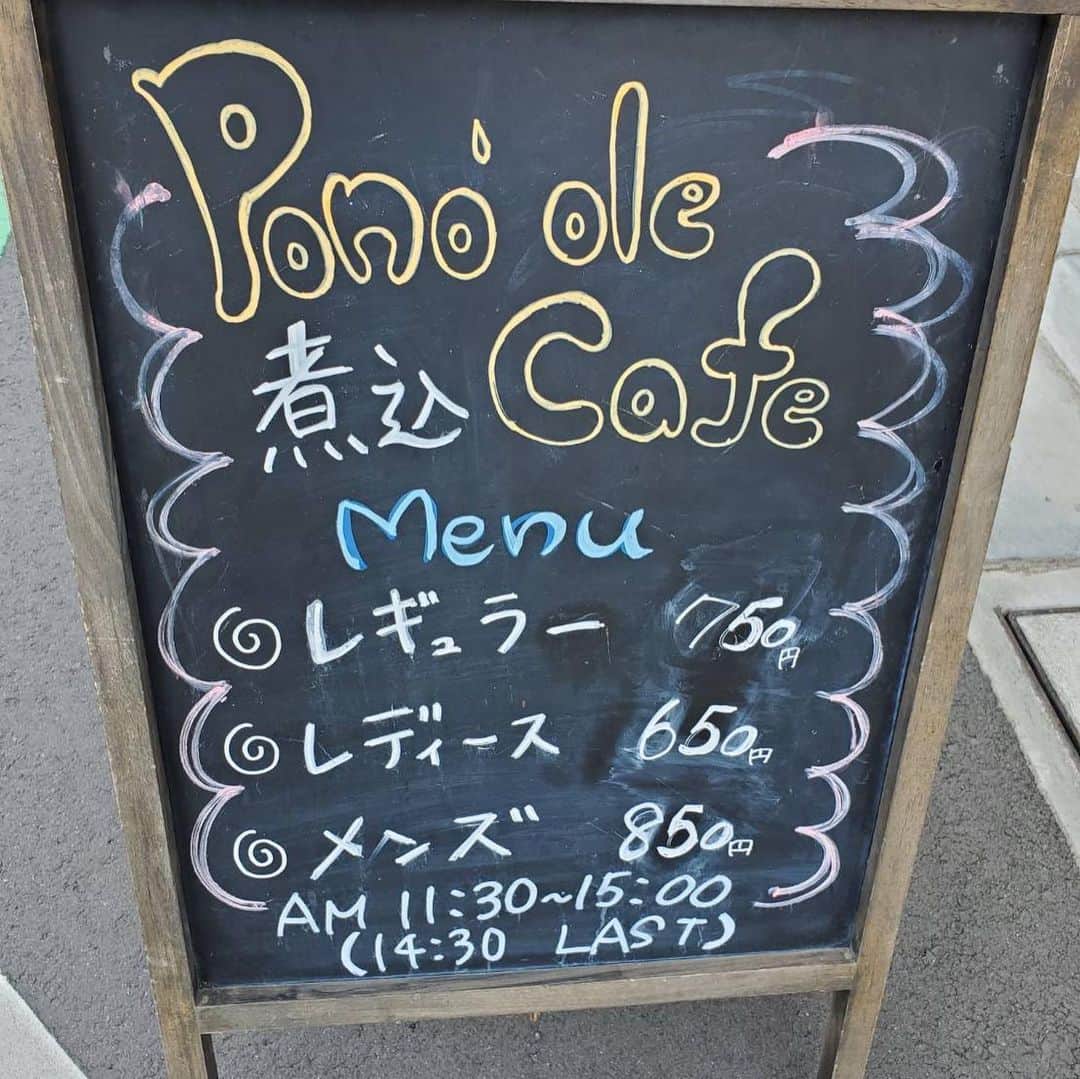 Pono'ole
煮込 Cafe
Menu
レギュラー 750円
レディース 650円
メンズ 850円
AM 11:30~15:00
(14:30 LAST)